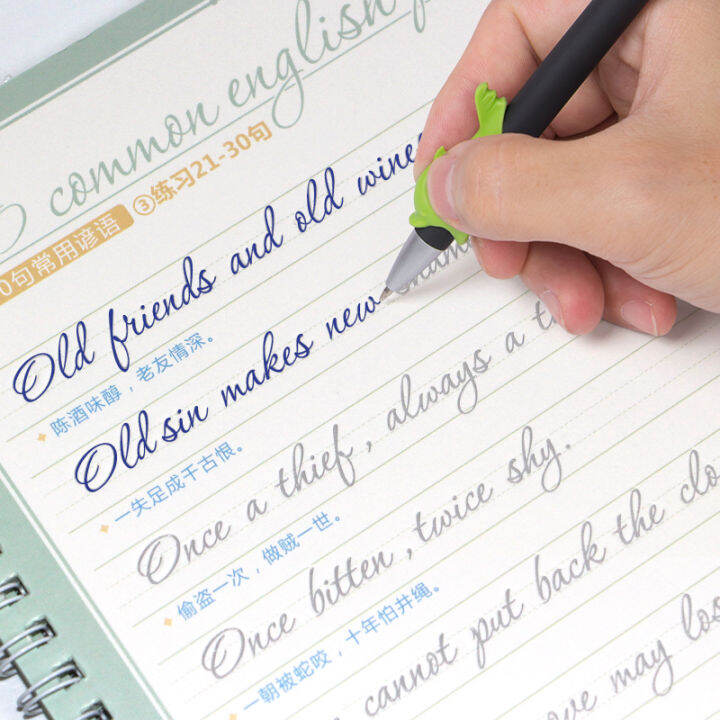 common english
0句常用谚语 ③练习21-30句
Old friends and old wine
陈酒味醇，老友情深。
Old sin makes new
一失足成千古恨。
Once a thief, always a
偷盗一次，做贼一世。
Once bitten, twice shy.
一朝被蛇咬，十年怕井绳。
cannot put back the
may